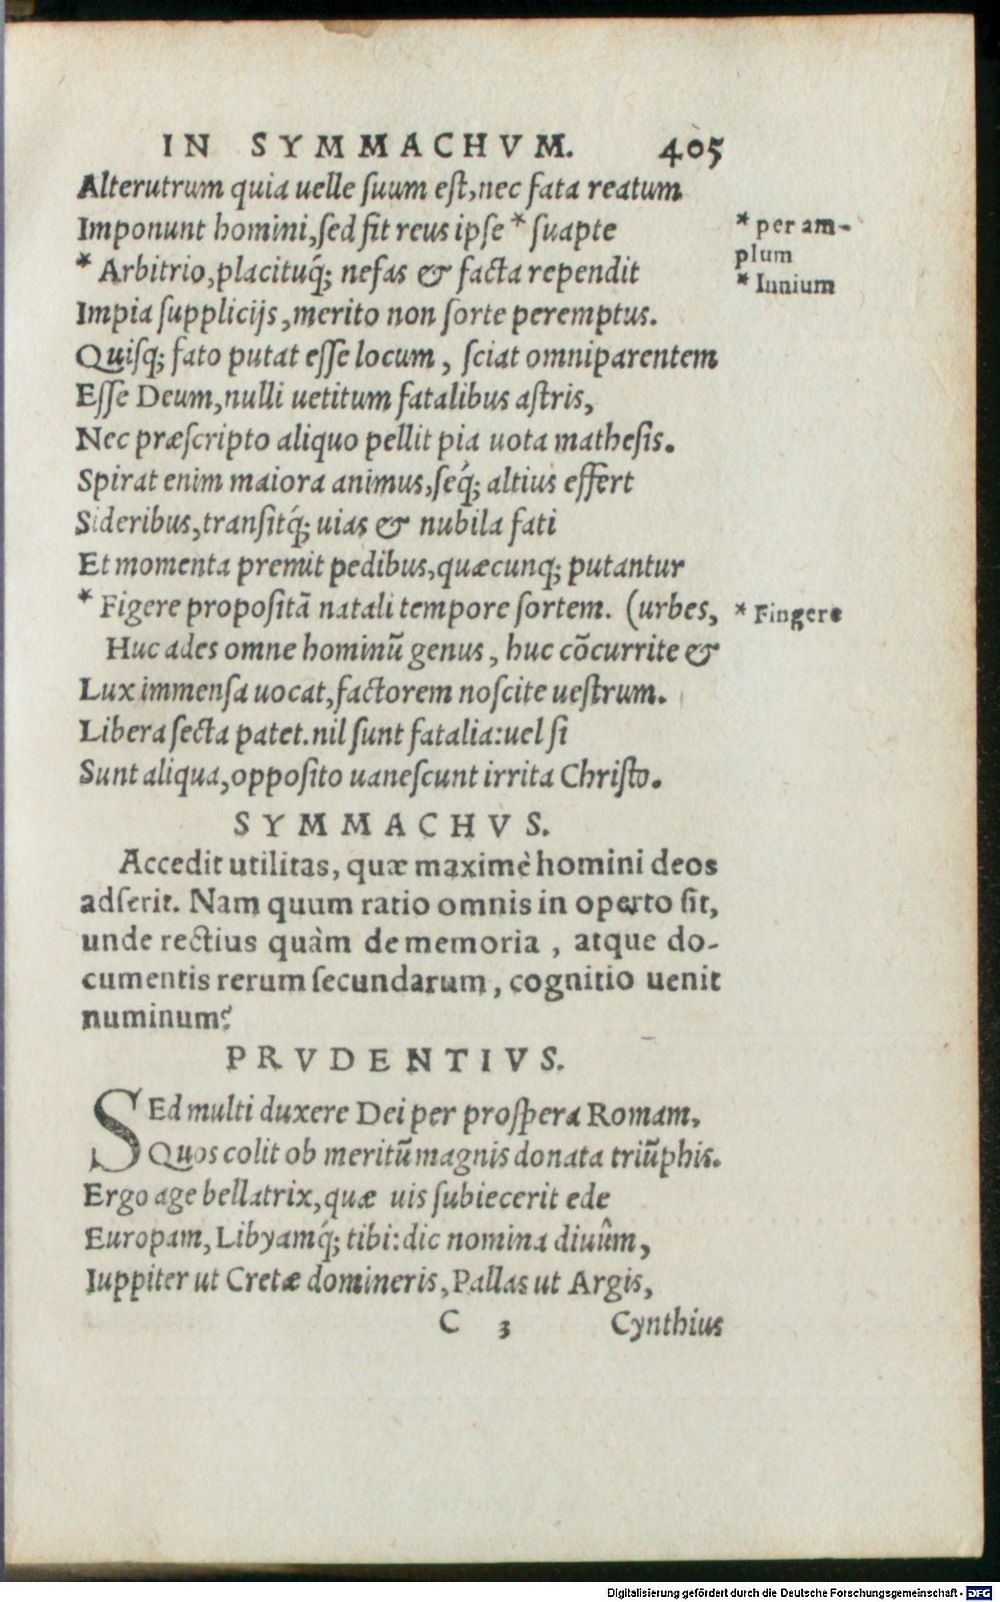 IN SYMMACHVM. 405
Alterutrum quia uelle suum est, nec fata reatum
Imponunt homini, sed fit reus ipse * suapte
* per am-
plum
* Arbitrio, placituq́; nefas & facta rependit
* Iunium
Impia supplicijs, merito non sorte peremptus.
Quisq; fato putat esse locum, sciat omniparentem
Esse Deum, nulli uetitum fatalibus astris,
Nec præscripto aliquo pellit pia uota mathesis.
Spirat enim maiora animus, seq́; altius effert
Sideribus, transitq́; uias & nubila fati
Et momenta premit pedibus, quæcunq; putantur
* Figere propositã natali tempore sortem. (urbes,
* Fingere
Huc ades omne hominũ genus, huc cõcurrite &
Lux immensa uocat, factorem noscite uestrum.
Libera secta patet. nil sunt fatalia: uel si
Sunt aliqua, opposito uanescunt irrita Christo.
SYMMACHVS.
Accedit utilitas, quæ maximè homini deos
adserit. Nam quum ratio omnis in operto sit,
unde rectius quàm de memoria, atque do-
cumentis rerum secundarum, cognitio uenit
numinum?
PRVDENTIVS.
SEd multi duxere Dei per prospera Romam,
Quos colit ob meritũ magnis donata triũphis.
Ergo age bellatrix, quæ uis subiecerit ede
Europam, Libyamq́; tibi: dic nomina diuûm,
Iuppiter ut Cretæ domineris, Pallas ut Argis,
C 3 Cynthius
Digitalisierung gefördert durch die Deutsche Forschungsgemeinschaft - DFG